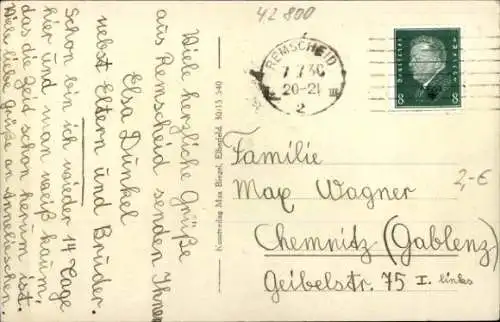 42 800
REMSCHEID
7.7.30
20-21
2
Deutsches Reich
8 8
Viele herzliche Grüße
aus Remscheid senden Ihnen
Elsa Dunkel
nebst Eltern und Bruder.
Schon bin ich wieder 14 Tage
hier und man weiß kaum,
das die Zeit schon herum ist.
Viele liebe Grüße an Anneliesechen.
Kunstverlag Max Biegel, Elberfeld 30/15 340
Familie
Max Wagner
Chemnitz (Gablenz)
Geibelstr. 75 I. links
2,-€